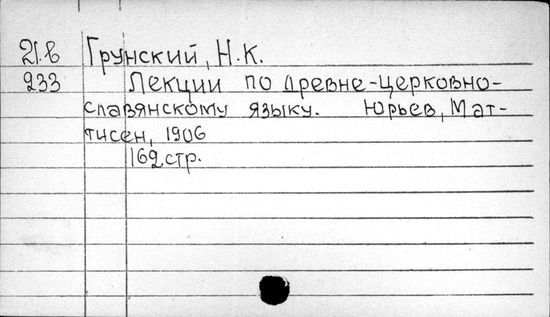 21.в Грунский, Н.К.
233 Лекции по древне-церковно-
славянскому языку. Юрьев, Мат-
тисен, 1906
162 стр.